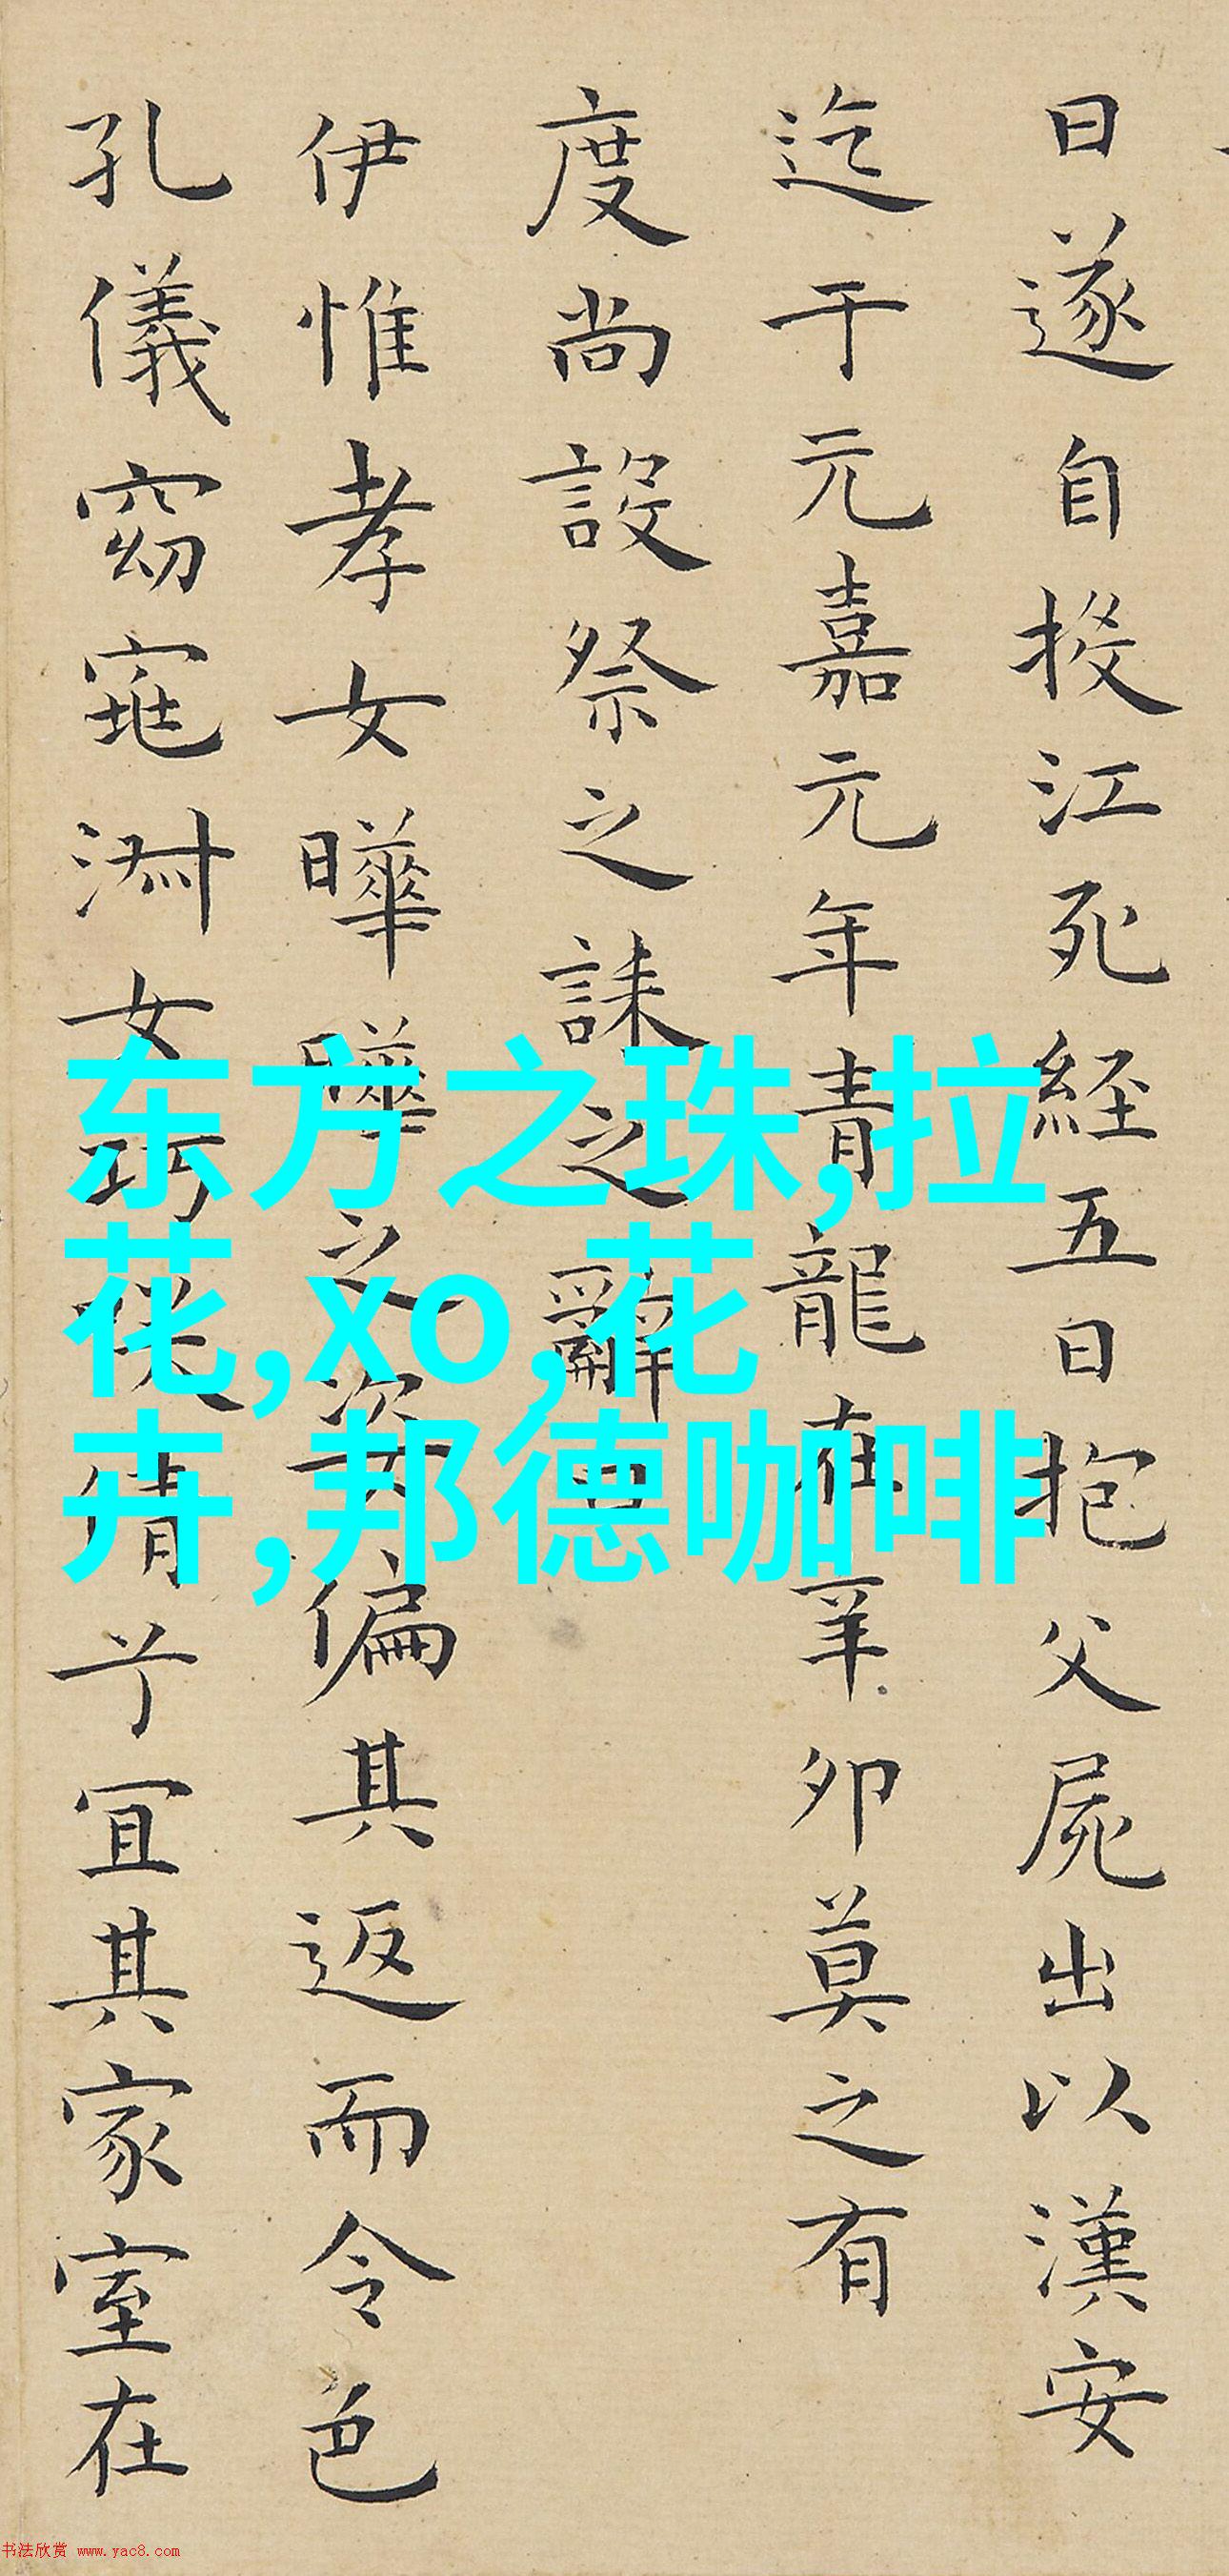 日遂自投江死経五日抱父屍出以漢安
迄于元嘉元年青龍在辛卯莫之有
度尚設祭之誄之辭
伊惟孝女曄曄之姿偏其返而令色
孔儀窈窕淑女巧咲倩兮宜其家室在
东方之珠,拉
花,xo,花
卉,邦德咖啡
书法欣赏 www.yac8.com